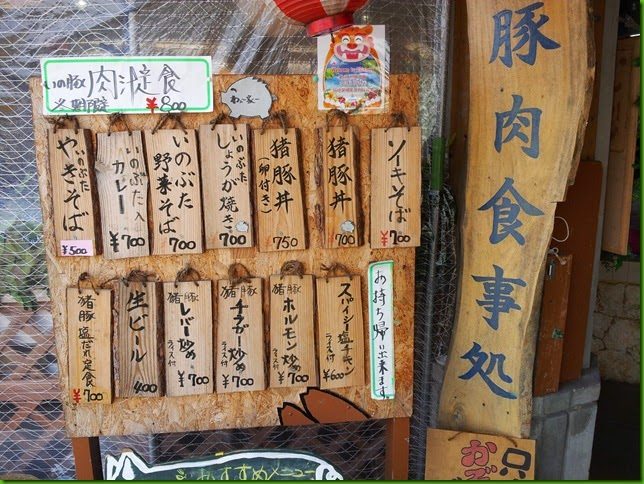 いの豚 肉汁定食
冬期限定 ¥800
ソーキそば
¥700
猪豚丼
¥700
猪豚丼
(卵付き)
750
いのぶた
しょうが焼き
700
いのぶた
野菜そば
700
いのぶた入
カレー
¥700
いのぶた
やきそば
¥500
スパイシー塩チキン
ライス付
¥600
猪豚
ホルモン炒め
ライス付
¥700
猪豚
チラガー炒め
ライス付
¥700
猪豚
レバー炒め
ライス付
¥700
生ビール
400
猪豚
塩だれ定食
¥700
お持ち帰り出来ます。
豚肉食事処
おすすめメニュー